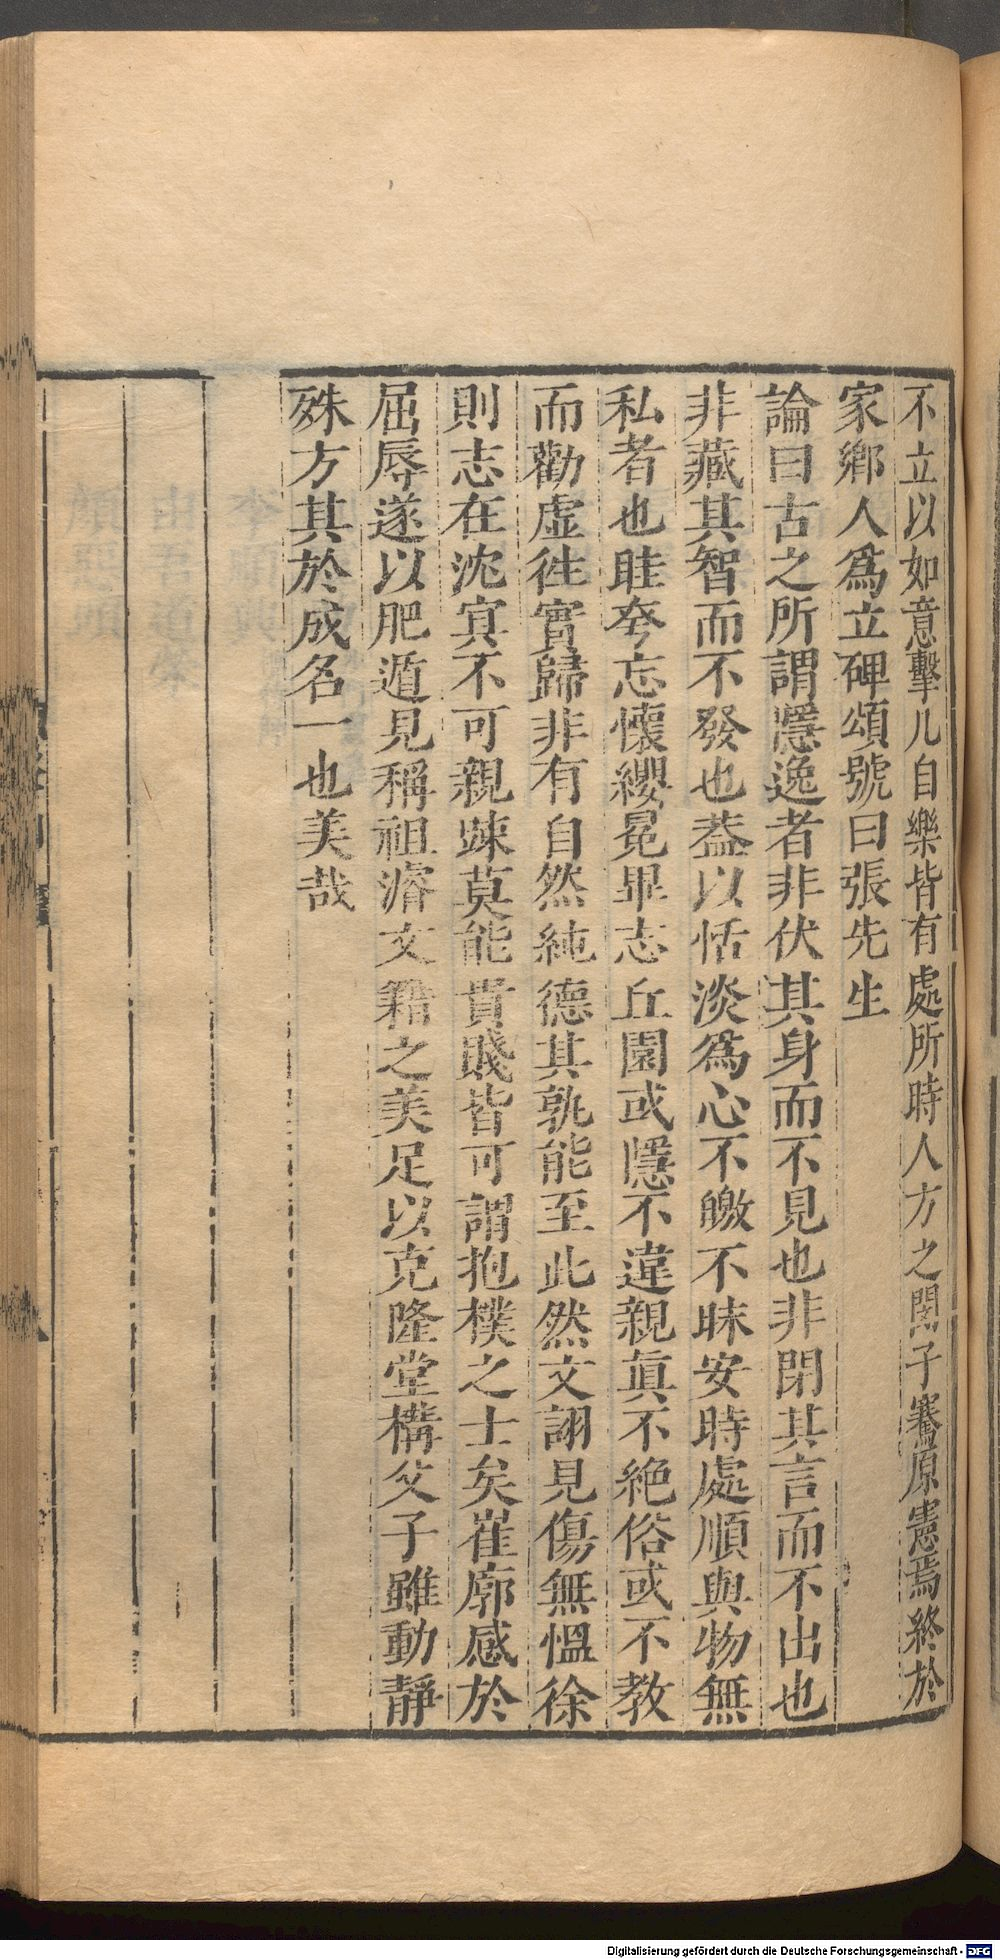 不立以如意擊几自樂皆有處所時人方之閔子騫原憲焉終於
家鄉人爲立碑頌號曰張先生
論曰古之所謂隱逸者非伏其身而不見也非閉其言而不出也
非藏其智而不發也葢以恬淡爲心不皦不昧安時處順與物無
私者也眭夸忘懷纓冕畢志丘園或隱不違親眞不絶俗或不教
而勸虛徃實歸非有自然純德其孰能至此然文詡見傷無慍徐
則志在沈冥不可親踈莫能貴賤皆可謂抱樸之士矣崔廓感於
屈辱遂以肥遁見稱祖濬文籍之美足以克隆堂構父子雖動靜
殊方其於成名一也美哉
Digitalisierung gefördert durch die Deutsche Forschungsgemeinschaft - DFG